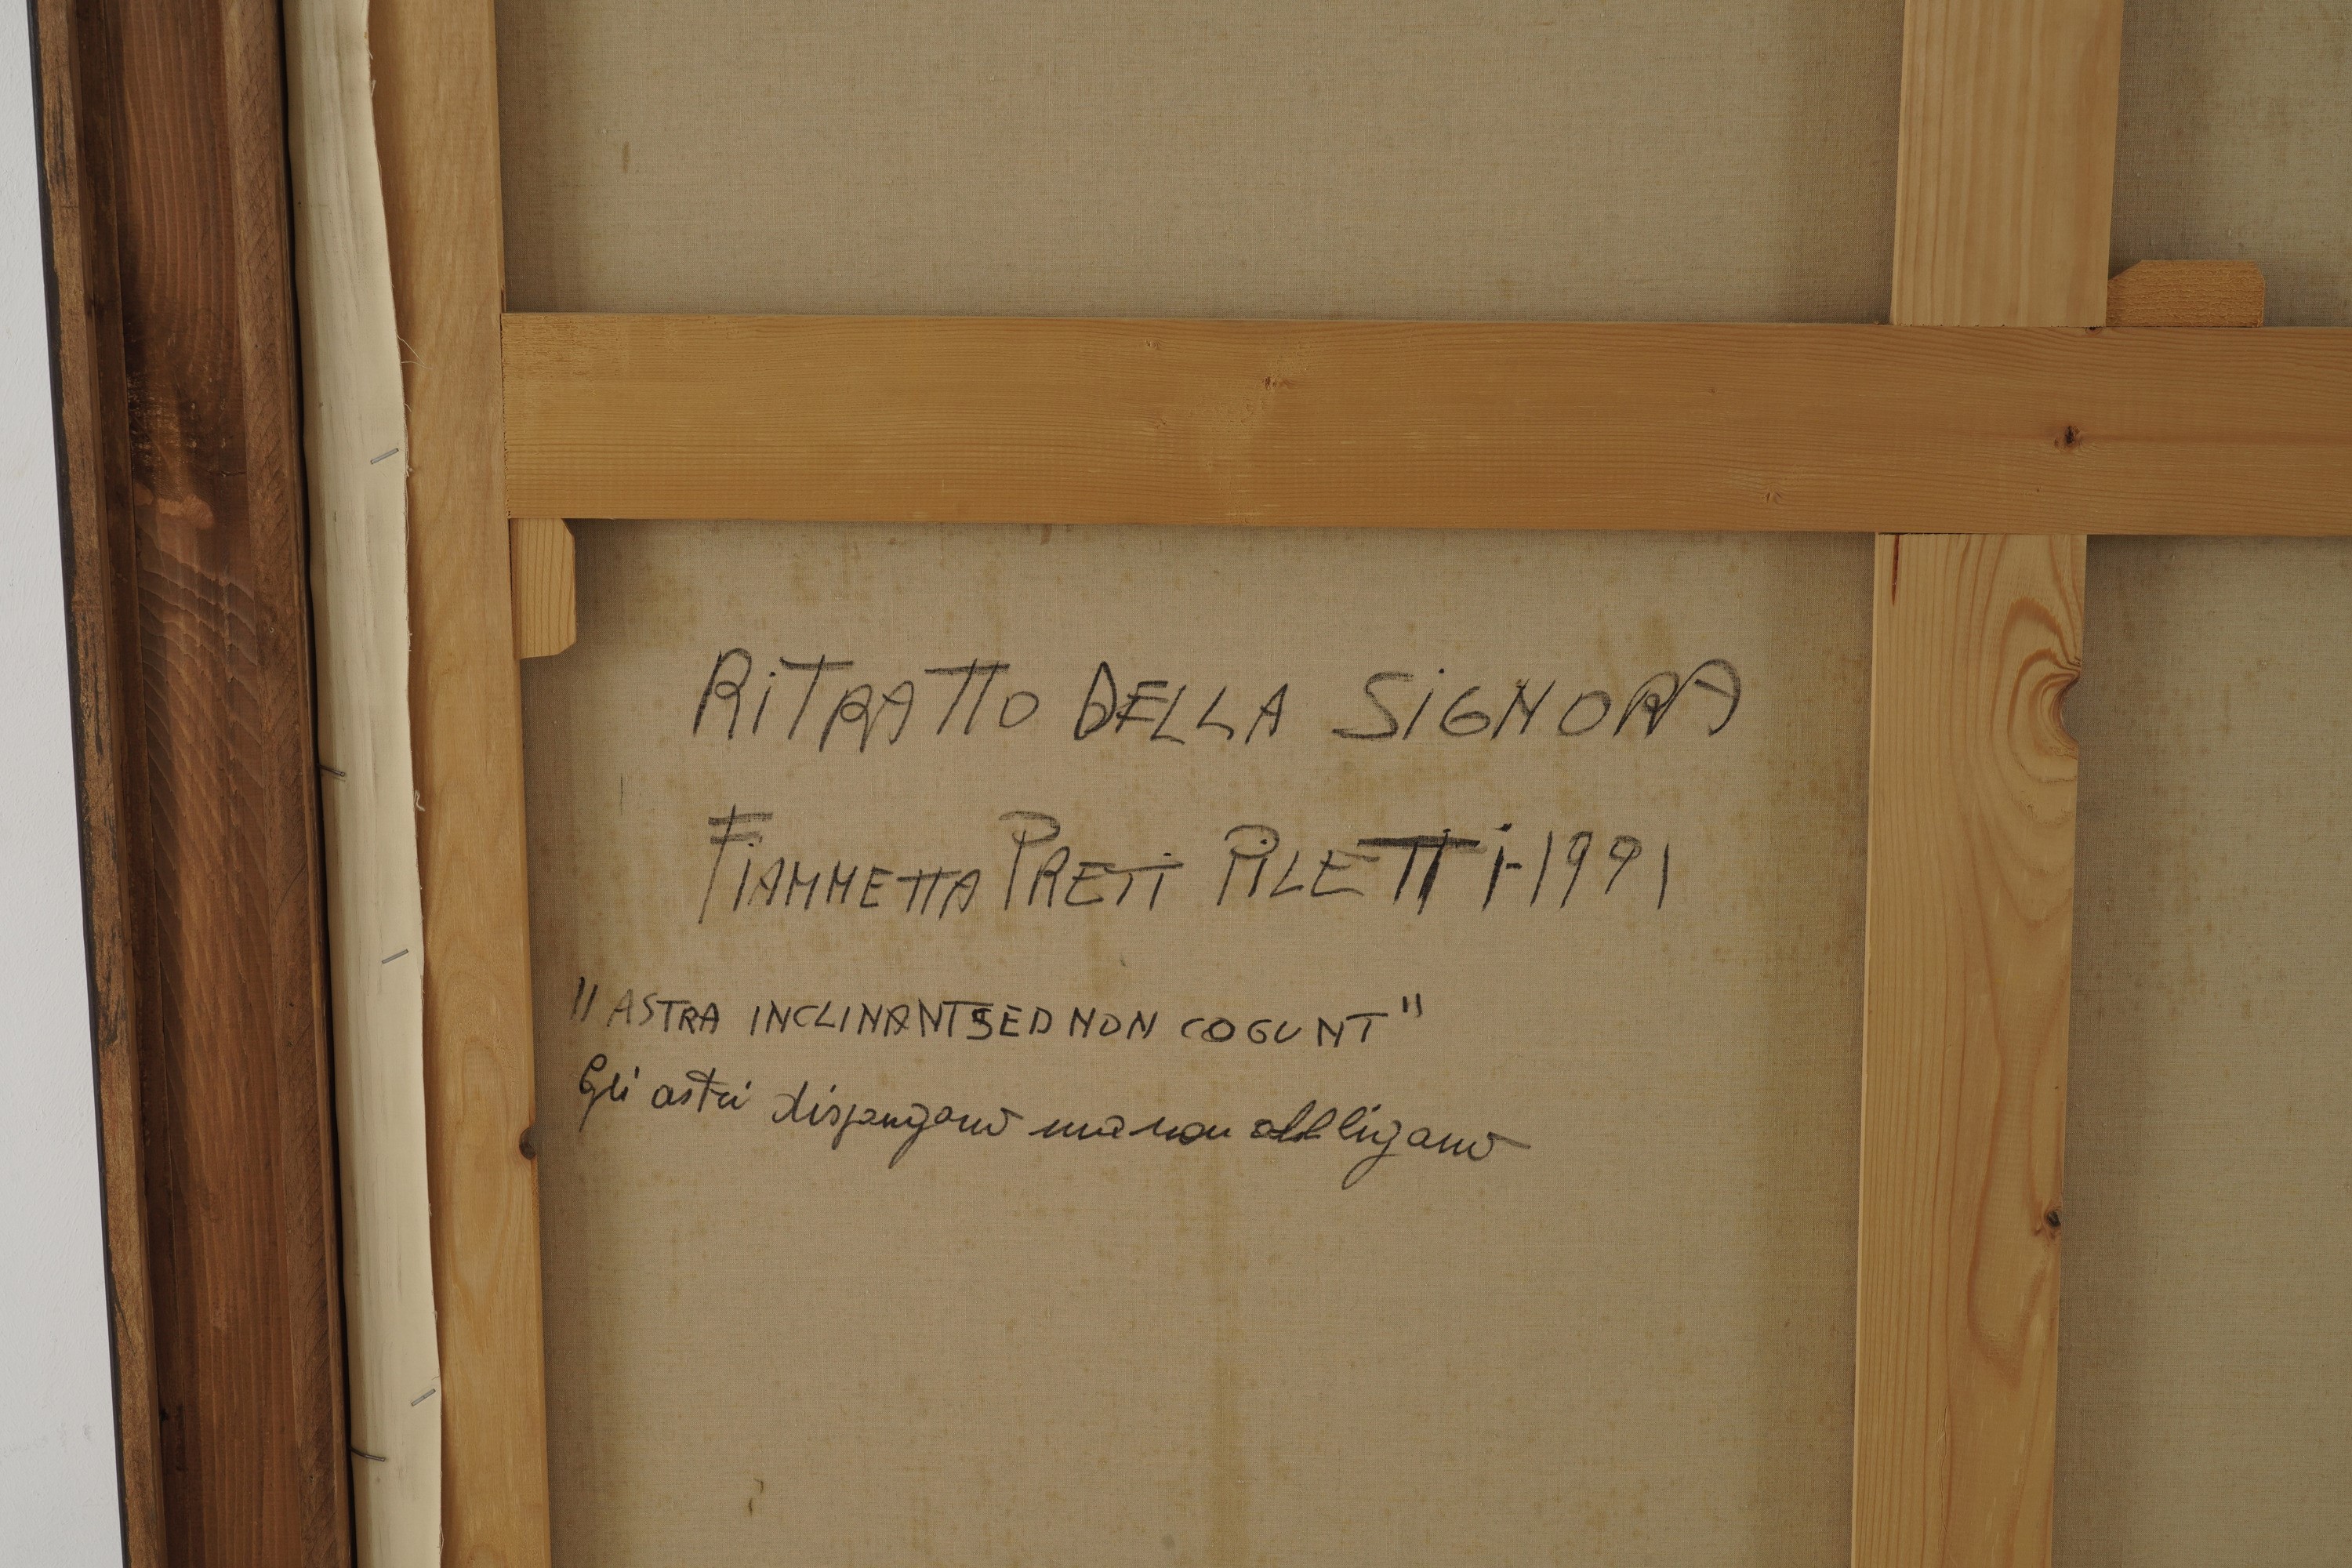 RiTRATTO DELLA SiGNORA
FiAMMETTA PRETi PiLETTi-1991
"ASTRA INCLINANT SED NON COGUNT"
Gli astri dispongono ma non obbligano